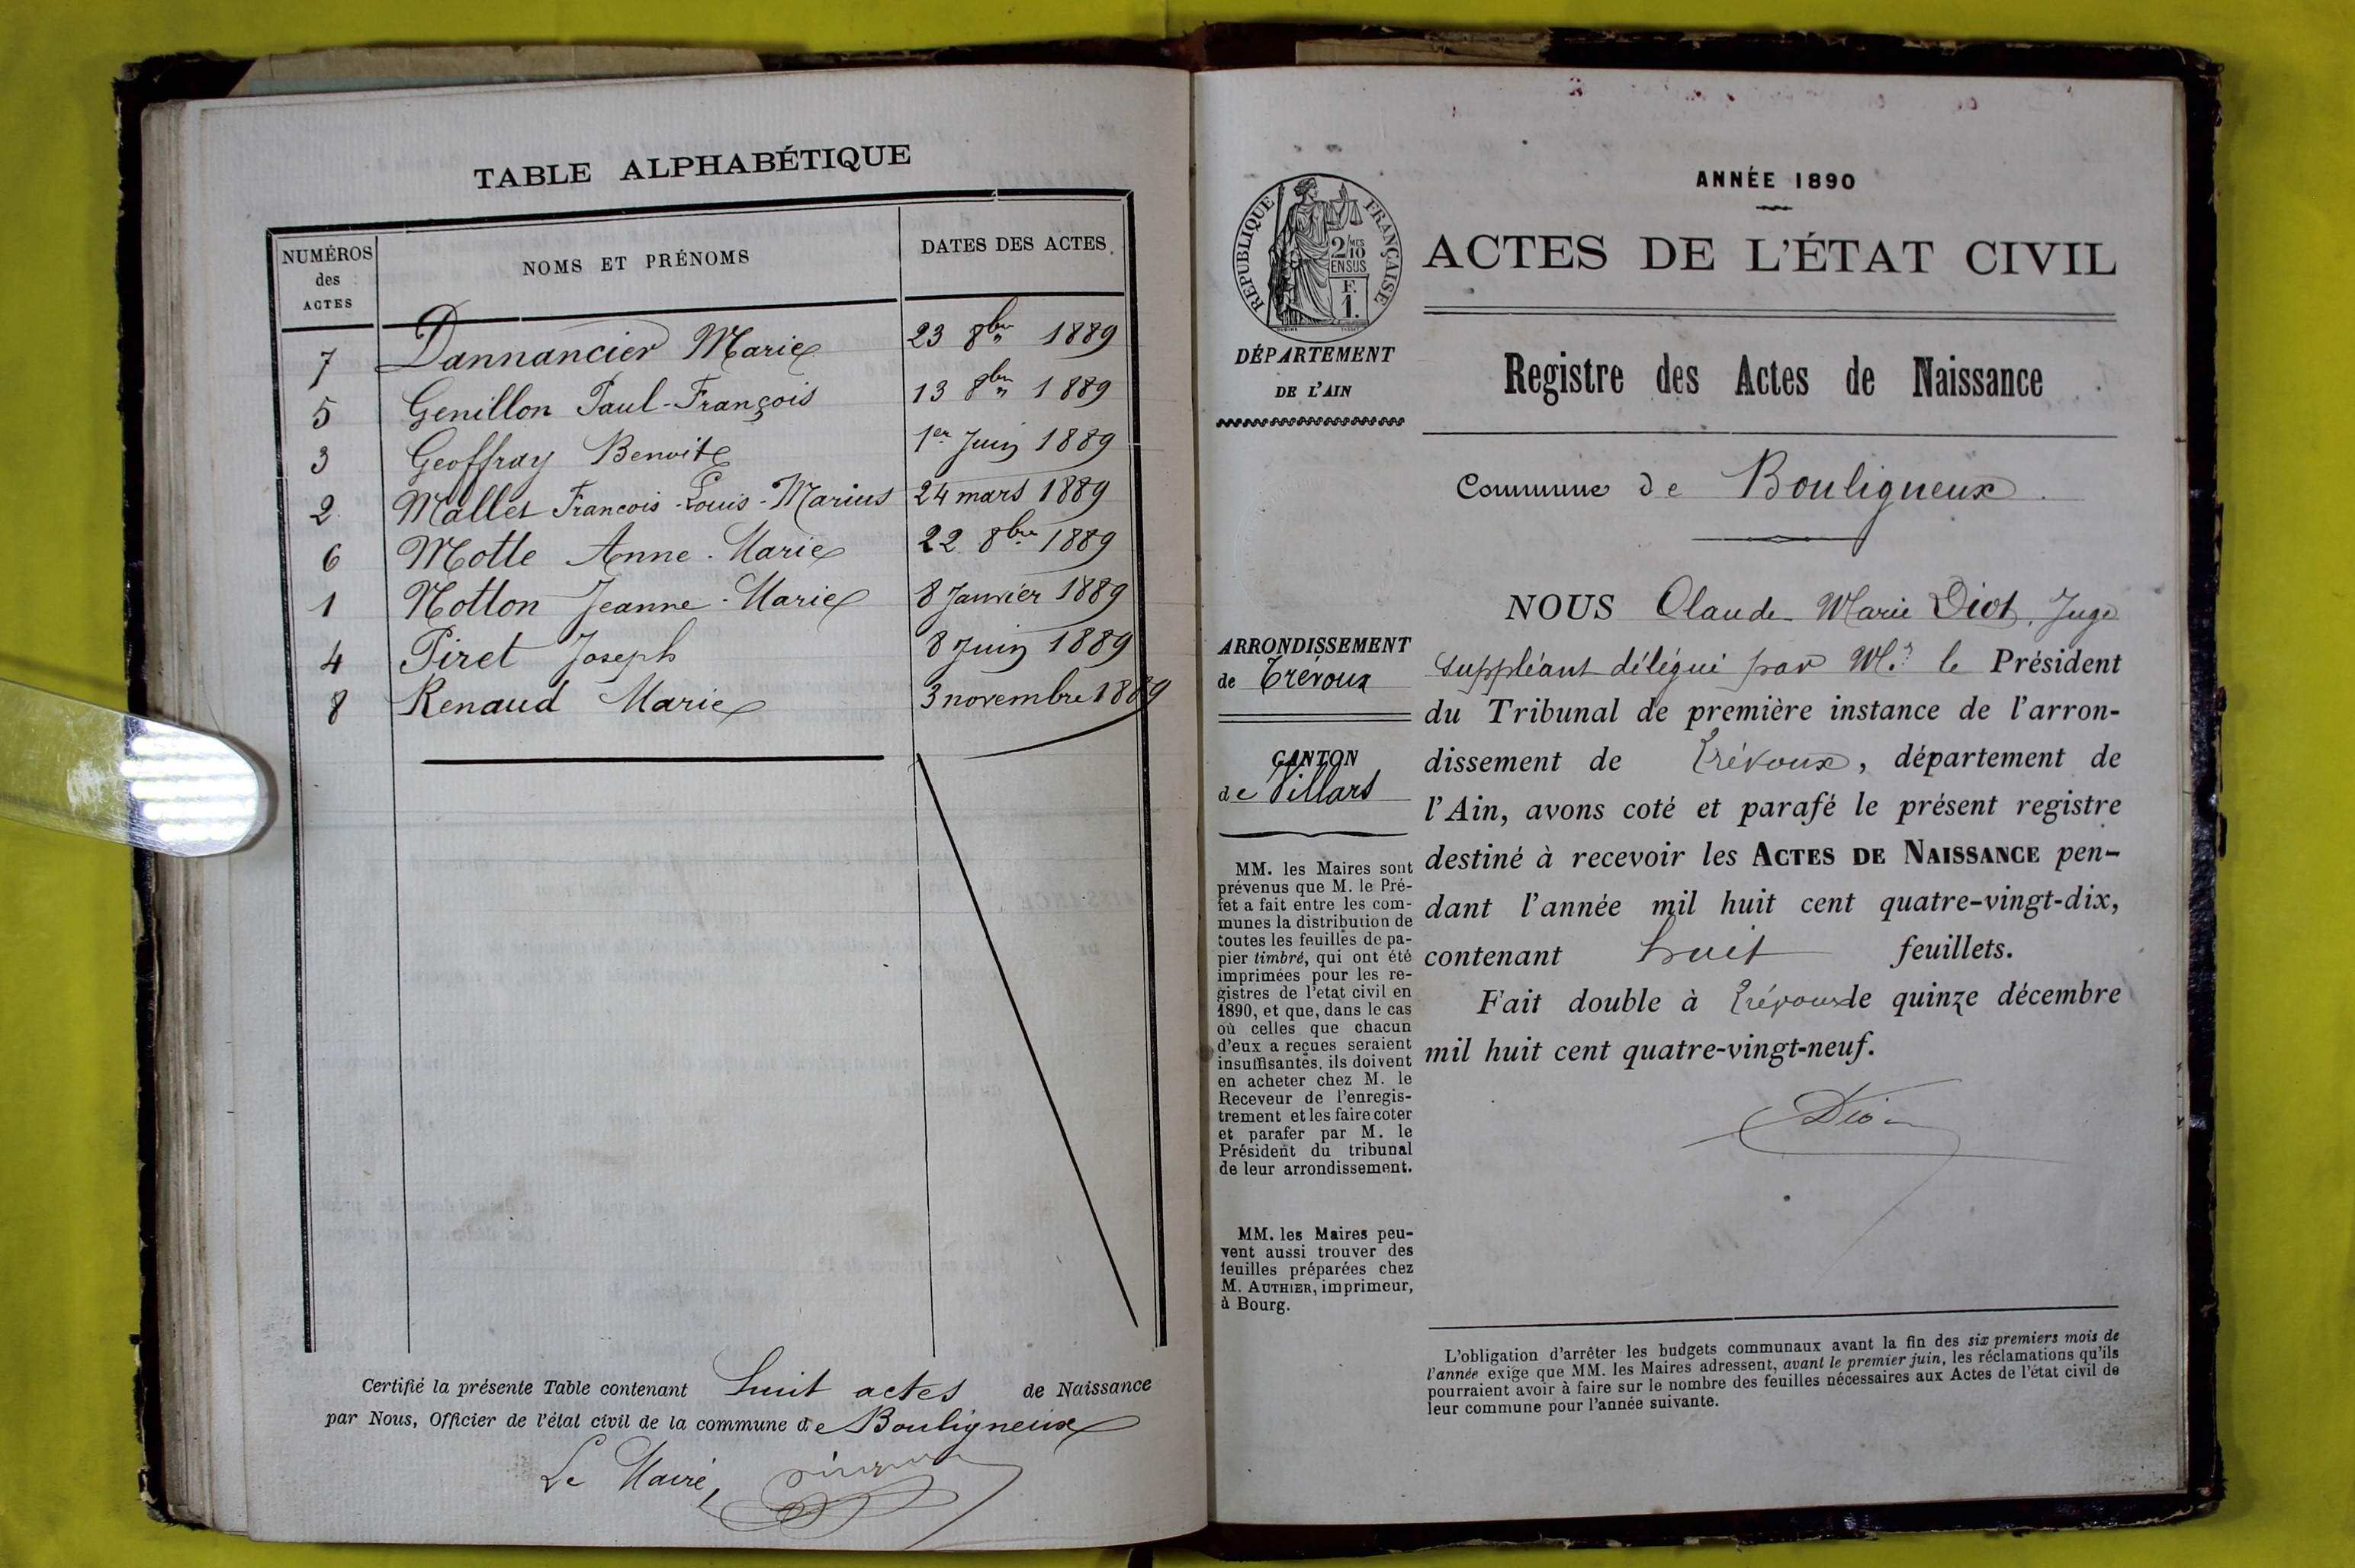 TABLE ALPHABÉTIQUE
NUMÉROS des ACTES NOMS ET PRÉNOMS DATES DES ACTES
7 Dannancier Marie 23 8bre 1889
5 Genillon Paul-François 13 8bre 1889
3 Geoffray Benoite 1er Juin 1889
2 Mallet Francois-Louis-Marius 24 mars 1889
6 Motte Anne-Marie 22 8bre 1889
1 Notton Jeanne-Marie 8 Janvier 1889
4 Piret Joseph 8 Juin 1889
8 Renaud Marie 3 novembre 1889
Certifié la présente Table contenant huit actes de Naissance
par Nous, Officier de l'état civil de la commune de Bouligneux
Le Maire,
RÉPUBLIQUE FRANÇAISE
2/10 MES
EN SUS
F.
1.
DÉPARTEMENT
DE L'AIN
ARRONDISSEMENT
de Trévoux
CANTON
de Villars
MM. les Maires sont
prévenus que M. le Pré-
fet a fait entre les com-
munes la distribution de
toutes les feuilles de pa-
pier timbré, qui ont été
imprimées pour les re-
gistres de l'etat civil en
1890, et que, dans le cas
où celles que chacun
d'eux a reçues seraient
insuffisantes, ils doivent
en acheter chez M. le
Receveur de l'enregis-
trement et les faire coter
et parafer par M. le
Président du tribunal
de leur arrondissement.
MM. les Maires peu-
vent aussi trouver des
feuilles préparées chez
M. AUTHIER, imprimeur,
à Bourg.
ANNÉE 1890
ACTES DE L'ÉTAT CIVIL
Registre des Actes de Naissance
Commune de Bouligneux.
NOUS Claude-Marie Diot, Juge
suppléant délégué par Mr. le Président
du Tribunal de première instance de l'arron-
dissement de Trévoux, département de
l'Ain, avons coté et parafé le présent registre
destiné à recevoir les ACTES DE NAISSANCE pen-
dant l'année mil huit cent quatre-vingt-dix,
contenant huit feuillets.
Fait double à Trévoux le quinze décembre
mil huit cent quatre-vingt-neuf.
Diot
L'obligation d'arrêter les budgets communaux avant la fin des six premiers mois de
l'année exige que MM. les Maires adressent, avant le premier juin, les réclamations qu'ils
pourraient avoir à faire sur le nombre des feuilles nécessaires aux Actes de l'état civil de
leur commune pour l'année suivante.